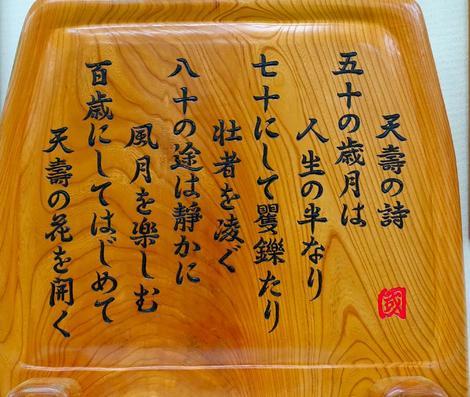 天壽の詩
五十の歳月は
人生の半なり
七十にして矍鑠たり
壮者を凌ぐ
八十の途は静かに
風月を楽しむ
百歳にしてはじめて
天壽の花を開く
國